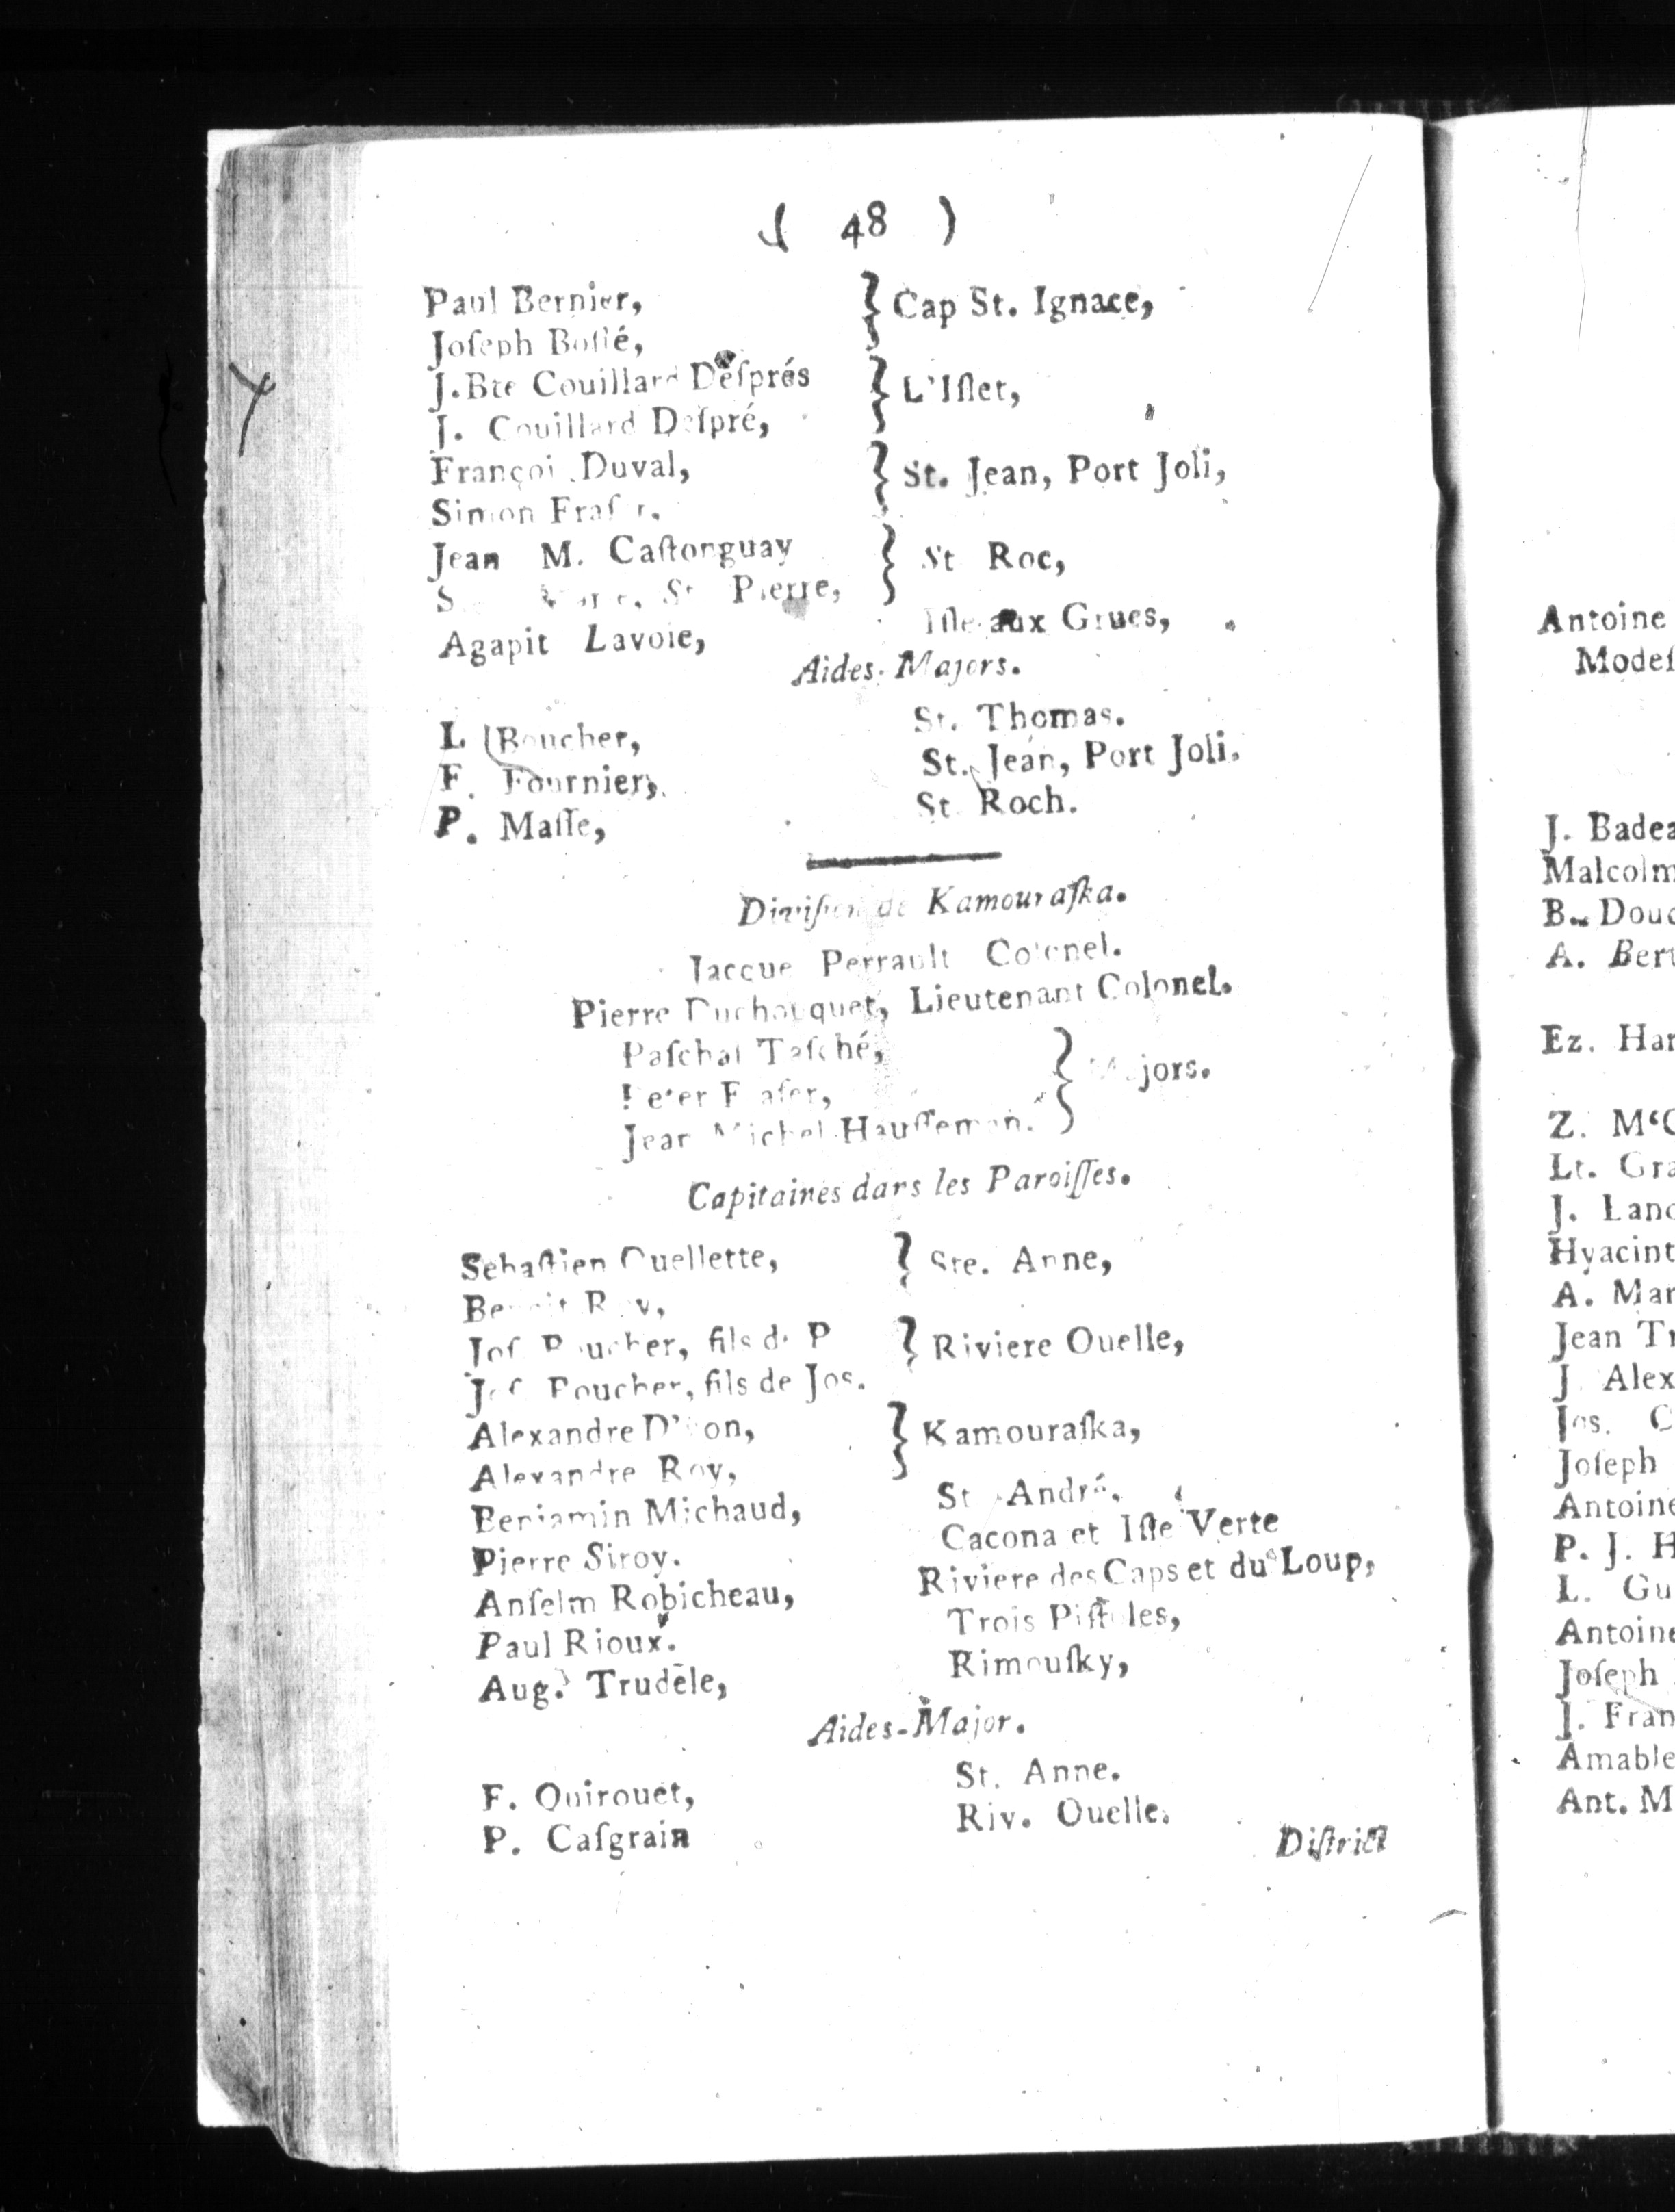 ( 48 )
Paul Bernier, } Cap St. Ignace,
Joſeph Boſſé,
J.Bte Couillard Deſprés } L'Iſlet,
J. Couillard Deſpré,
Françoi Duval, } St. Jean, Port Joli,
Simon Fraſer.
Jean M. Caſtonguay } St Roc,
St Pierre,
Agapit Lavoie, Iſle aux Grues,
Aides-Majors.
L Boucher, St. Thomas.
F. Fournier, St. Jean, Port Joli.
P. Maſſe, St Roch.
Diviſion de Kamouraſka.
Jacque Perrault Colonel.
Pierre Duchouquet, Lieutenant Colonel.
Paſchal Taſché,
Peter Fraſer, } Majors.
Jean Michel Hauſſeman.
Capitaines dans les Paroiſſes.
Sebaſtien Ouellette, } Ste. Anne,
Benoit Roy,
Joſ Boucher, fils de P } Riviere Ouelle,
Joſ Boucher, fils de Jos.
Alexandre D'ion, } Kamouraſka,
Alexandre Roy,
Benjamin Michaud, St André,
Pierre Siroy. Cacona et Iſle Verte
Anſelm Robicheau, Riviere des Caps et du Loup,
Paul Rioux. Trois Piſtoles,
Aug. Trudéle, Rimouſky,
Aides-Major.
F. Quirouet, St. Anne.
P. Caſgrain Riv. Ouelle.
Diſtrict
Antoine
J.
Malcolm
B.
A.
Ez.
Z.
Lt.
J.
A.
Jean
J
Jos.
Joſeph
P. J.
L.
Joſeph
J.
Ant.